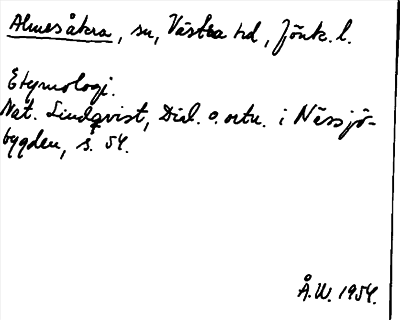 Almesåkra, sn, Västra hd, Jönk. l.
Etymologi.
Nat. Lindqvist, Dial. o. ortn. i Nässjö-
bygden, s. 54.
Å.W. 1954.